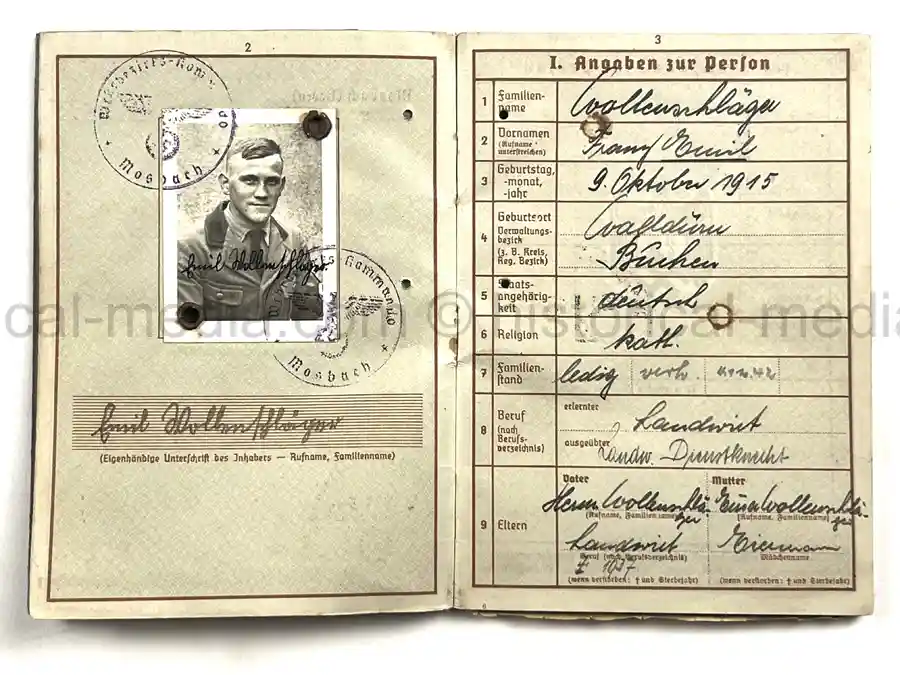 2
Wehrbezirks-Komm
Mosbach
Emil Wollenschläger
Kommando
Mosbach
Emil Wollenschläger
(Eigenhändige Unterschrift des Inhabers — Rufname, Familienname)
3
I. Angaben zur Person
1 Familien-name Wollenschläger
2 Vornamen (Rufname unterstreichen) Franz Emil
3 Geburtstag, -monat, -jahr 9. Oktober 1915
4 Geburtsort Verwaltungs-bezirk (z. B. Kreis, Reg. Bezirk) Walldürn
Buchen
5 Staats-angehörig-keit deutsch
6 Religion kath.
7 Familien-stand ledig verh.
8 Beruf (nach Berufs-verzeichnis) erlernter Landwirt
ausgeübter Landw. Dienstknecht
9 Eltern
Vater Mutter
Wollenschläger Wollenschläger
(Rufname, Familienname) (Rufname, Familienname)
Landwirt Eiermann
Beruf (nach Berufsverzeichnis) Mädchenname
(wenn verstorben: † und Sterbejahr) (wenn verstorben: † und Sterbejahr)
6
cal-media.com © historical-media